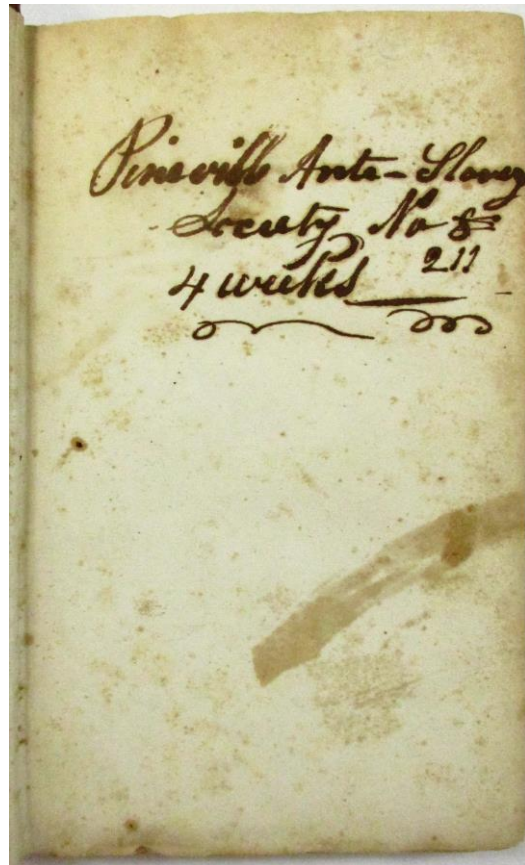 Pineville Ante-Slavery
Society No 8
211
4 weeks